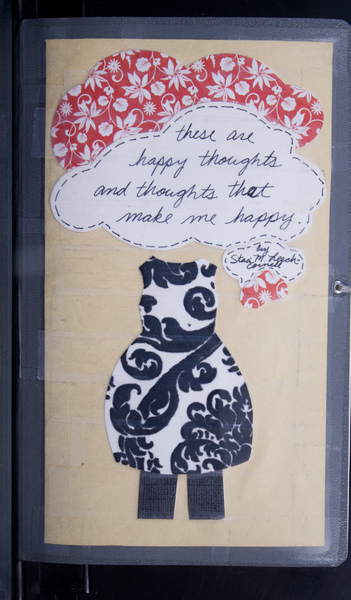 these are
happy thoughts
and thoughts that
make me happy.
by
Staci M. Leech-
Cornell